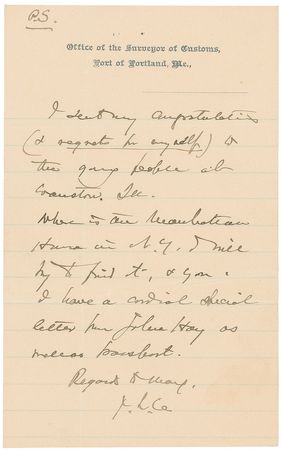 P.S.
Office of the Surveyor of Customs,
Port of Portland, Me.,
I send my congratulations
(& regrets for myself) to
the young people at
Evanston. Ill.
Where is the Manhattan
House in N.Y. I will
try to find it, & you.
I have a cordial special
letter from John Hay as
well as passport.
Regards to Mary,
J. L. C.